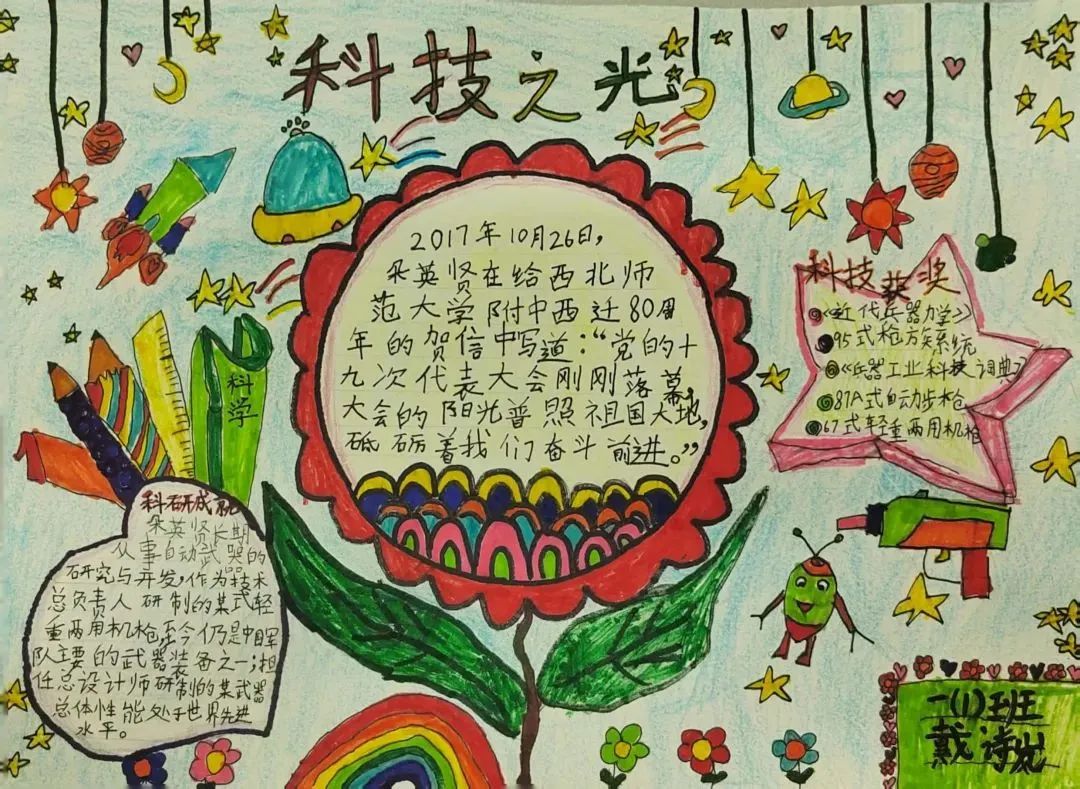 科技之光
2017年10月26日,
朵英贤在给西北师
范大学附中西迁80周
年的贺信中写道:“党的十
九次代表大会刚刚落幕,
大会的阳光普照祖国大地,
砥砺着我们奋斗前进。”
科技获奖
《近代兵器力学》
95式枪族系统
《兵器工业科技词典》
87A式自动步枪
67式轻重两用机枪
科学
科研成就
朵英贤长期
从事自动武器的
研究与开发,作为技术
总负责人研制的某式轻
重两用机枪至今仍是中国军
队主要的武器装备之一;担
任总设计师研制的某武器
总体性能处于世界先进
水平。
一(1)班
戴诗